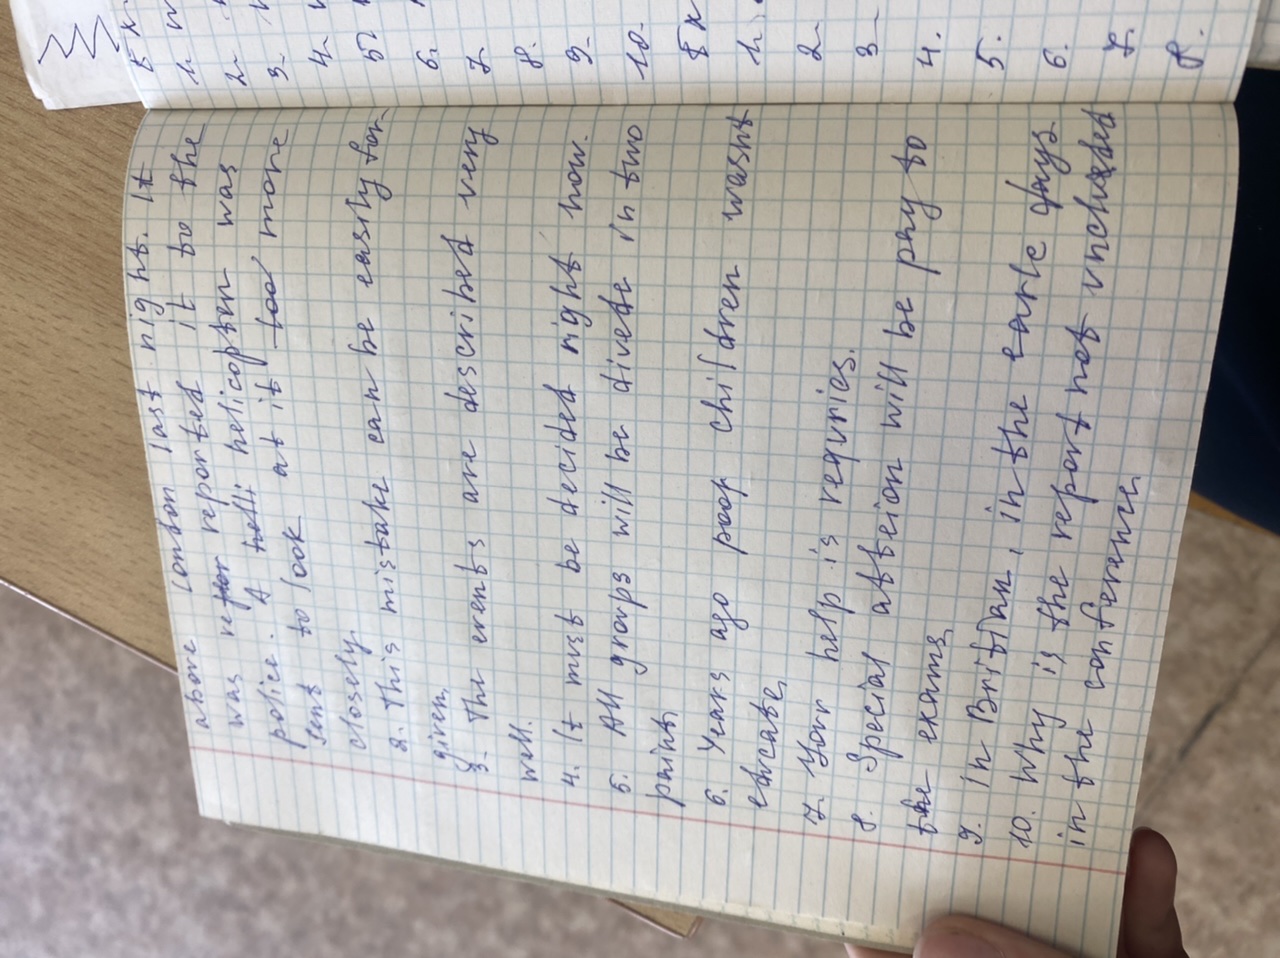 above london last night. It
was reported it to the
police. A helicopter was
sent to look at it more
closely
2. This mistake can be easily for-
given.
3. The events are described very
well.
4. It must be decided right now.
5. All groups will be divete in two
paints
6. Years ago poop children wasnt
educate,
7. Your help is requries.
8. Special atteion will be pay to
the exams,
9. In Brittian, in the earle days
10. Why is the report not unchuded
in the conference
5 x
1.
2.
3.
4.
5.
6.
7.
8.
9.
10.
1.
2
3
4.
5.
6.
7.
8.